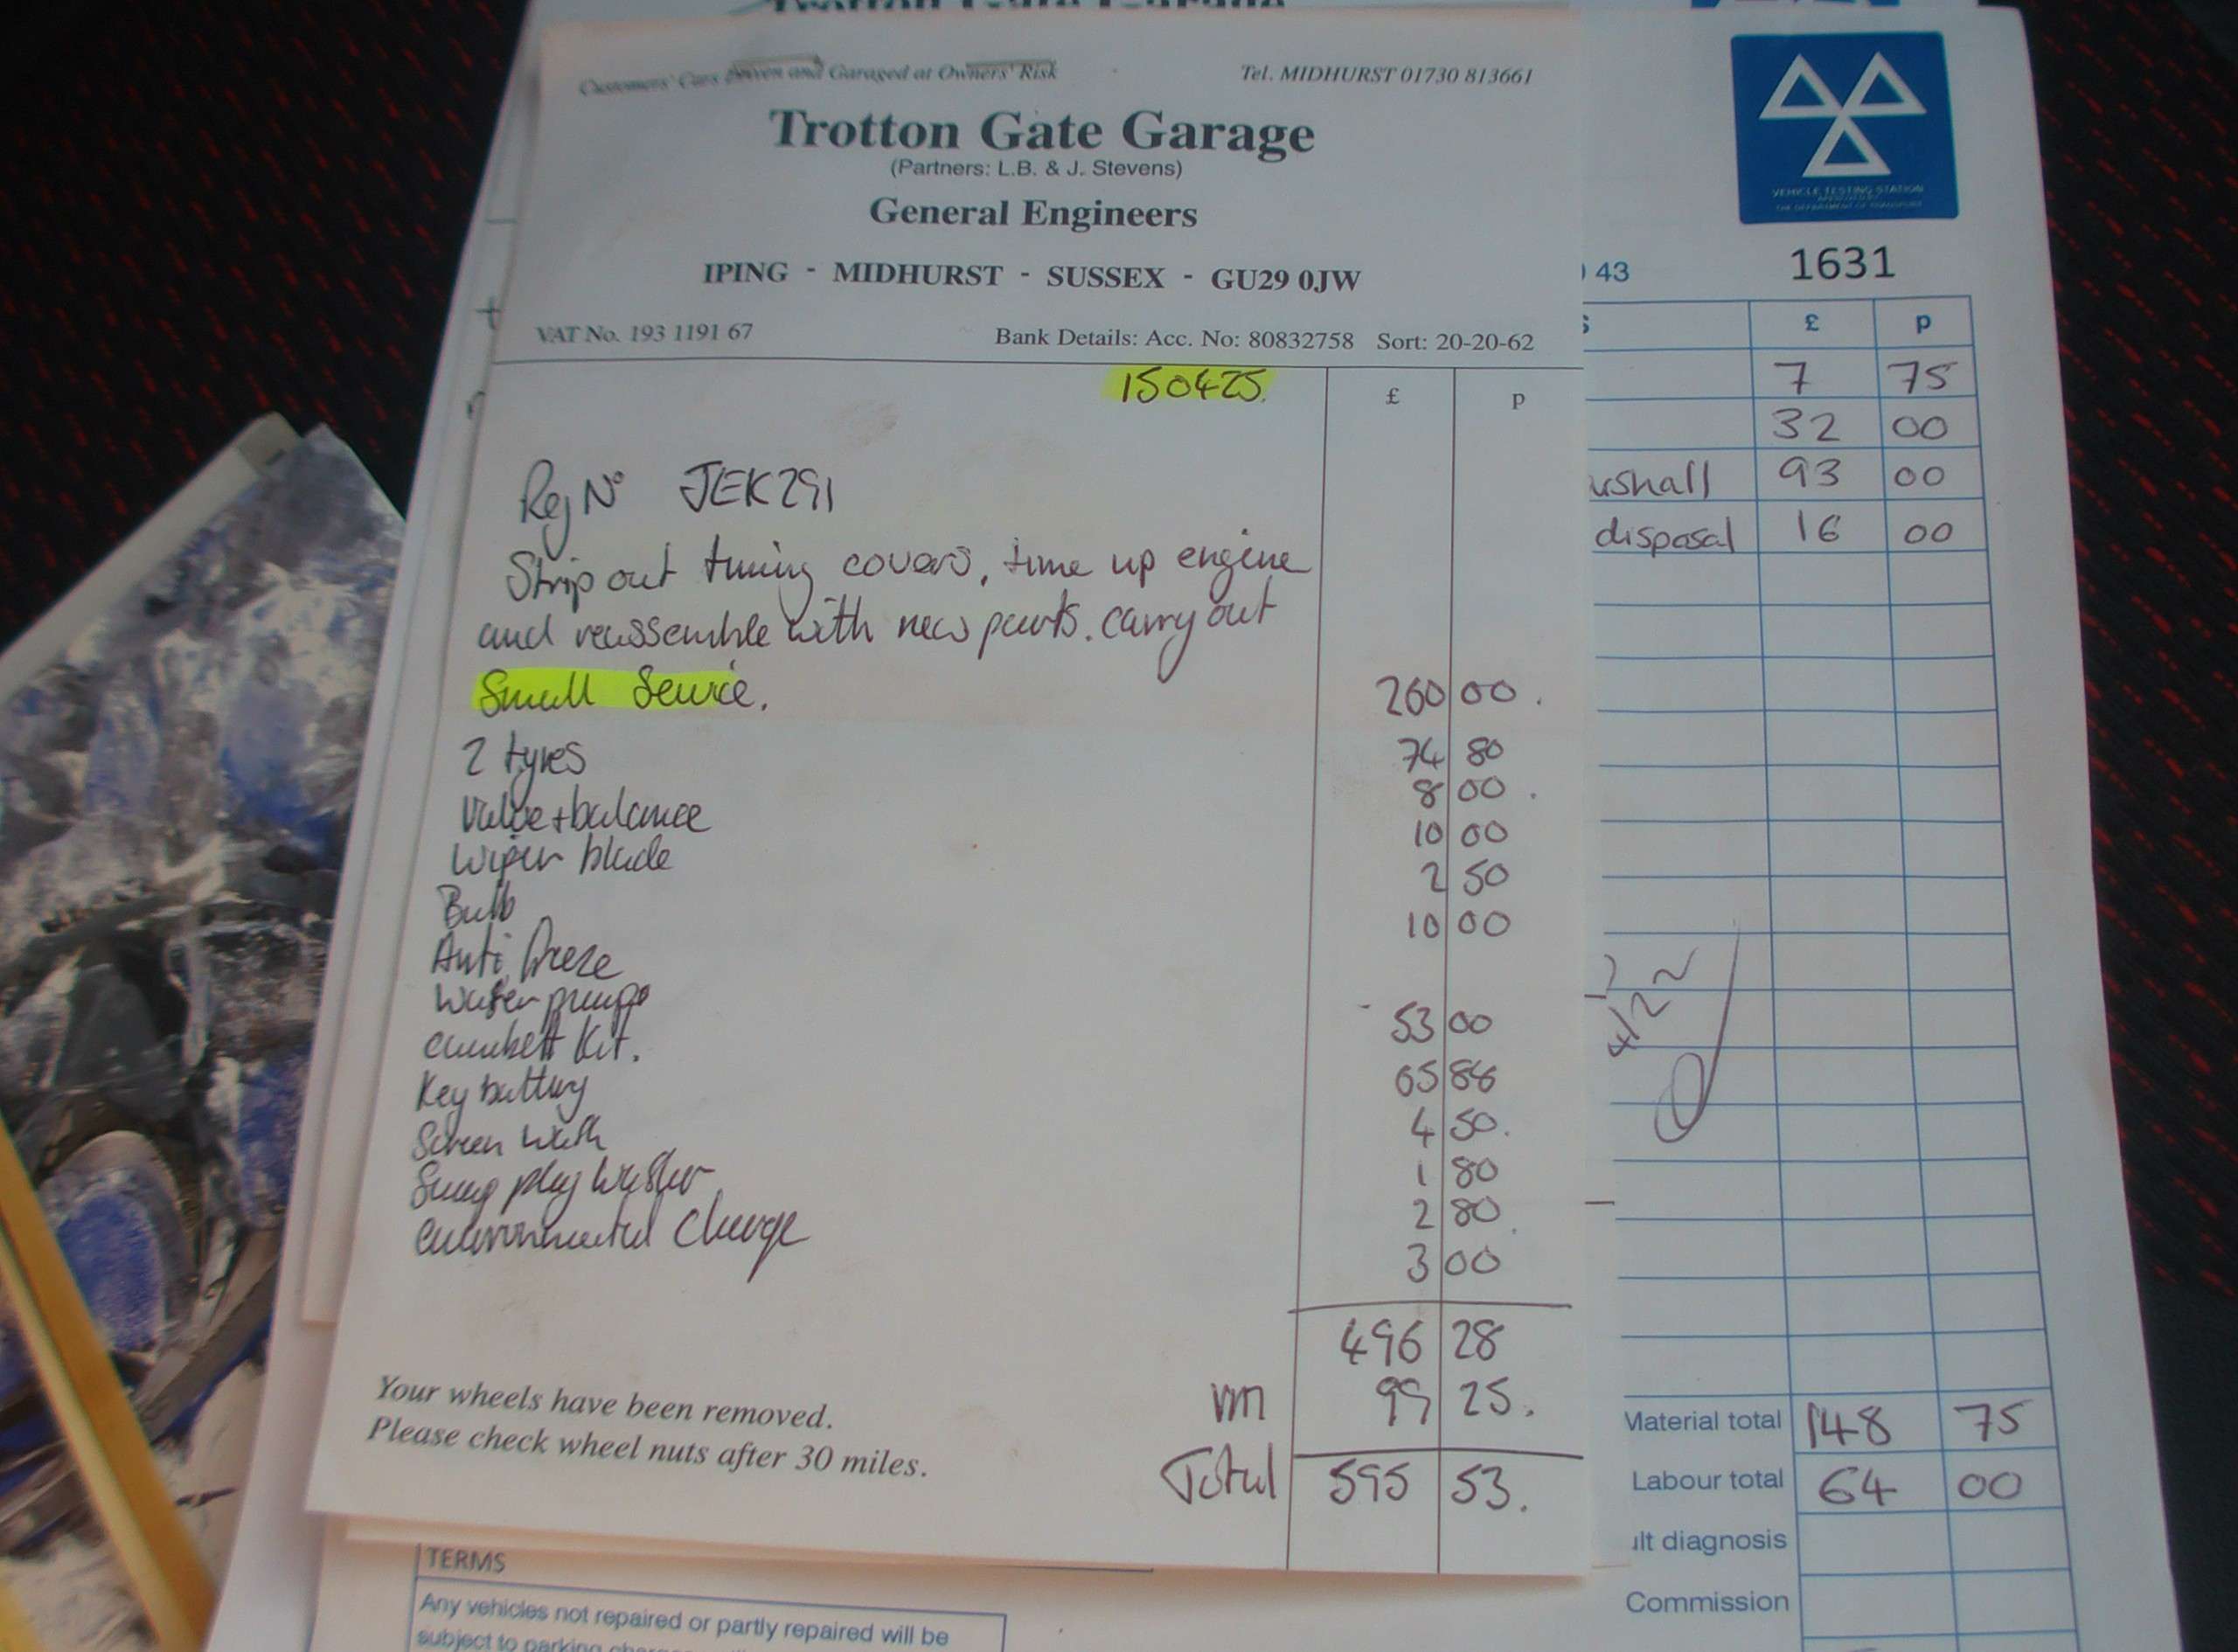 Customers' Cars Driven and Garaged at Owners' Risk
Tel. MIDHURST 01730 813661
Trotton Gate Garage
(Partners: L.B. & J. Stevens)
General Engineers
IPING - MIDHURST - SUSSEX - GU29 0JW
VAT No. 193 1191 67
Bank Details: Acc. No: 80832758 Sort: 20-20-62
150425.
£ p
Reg No JEK291
Strip out timing covers, time up engine
and reassemble with new parts. carry out
Small Service. 260 00.
2 tyres 74 80
Valve + balance 8 00.
Wiper blade 10 00
Bulb 2 50
Anti freeze 10 00
Water pump
cambelt Kit. 53 00
65 88
Key battery 4 50.
Screen Wash 1 80
Sump plug washer 2 80.
environmental Charge 3 00
496 28
99 25.
Total 595 53.
Your wheels have been removed.
Please check wheel nuts after 30 miles.
VEHICLE TESTING STATION
43 1631
£ p
7 75
32 00
93 00
disposal 16 00
Material total 148 75
Labour total 64 00
diagnosis
Commission
TERMS
Any vehicles not repaired or partly repaired will be
subject to parking